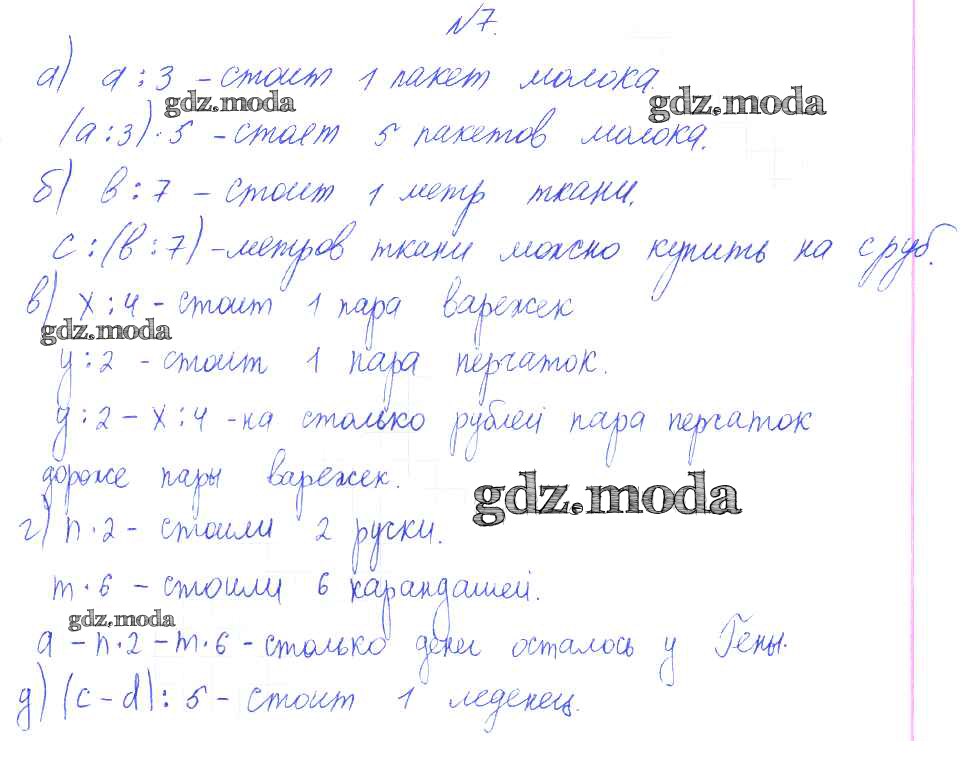 №7.
а) а : 3 – стоит 1 пакет молока.
gdz.moda gdz.moda
(а : 3) · 5 – стоят 5 пакетов молока.
б) в : 7 – стоит 1 метр ткани.
с : (в : 7) – метров ткани можно купить на с руб.
в) х : 4 – стоит 1 пара варежек
gdz.moda
у : 2 – стоит 1 пара перчаток.
у : 2 – х : 4 – на столько рублей пара перчаток
дороже пары варежек.
gdz.moda
г) n · 2 – стоили 2 руски.
m · 6 – стоили 6 карандашей.
gdz.moda
а – n · 2 – m · 6 – столько денег осталось у Гены.
д) (с – d) : 5 – стоит 1 леденец.